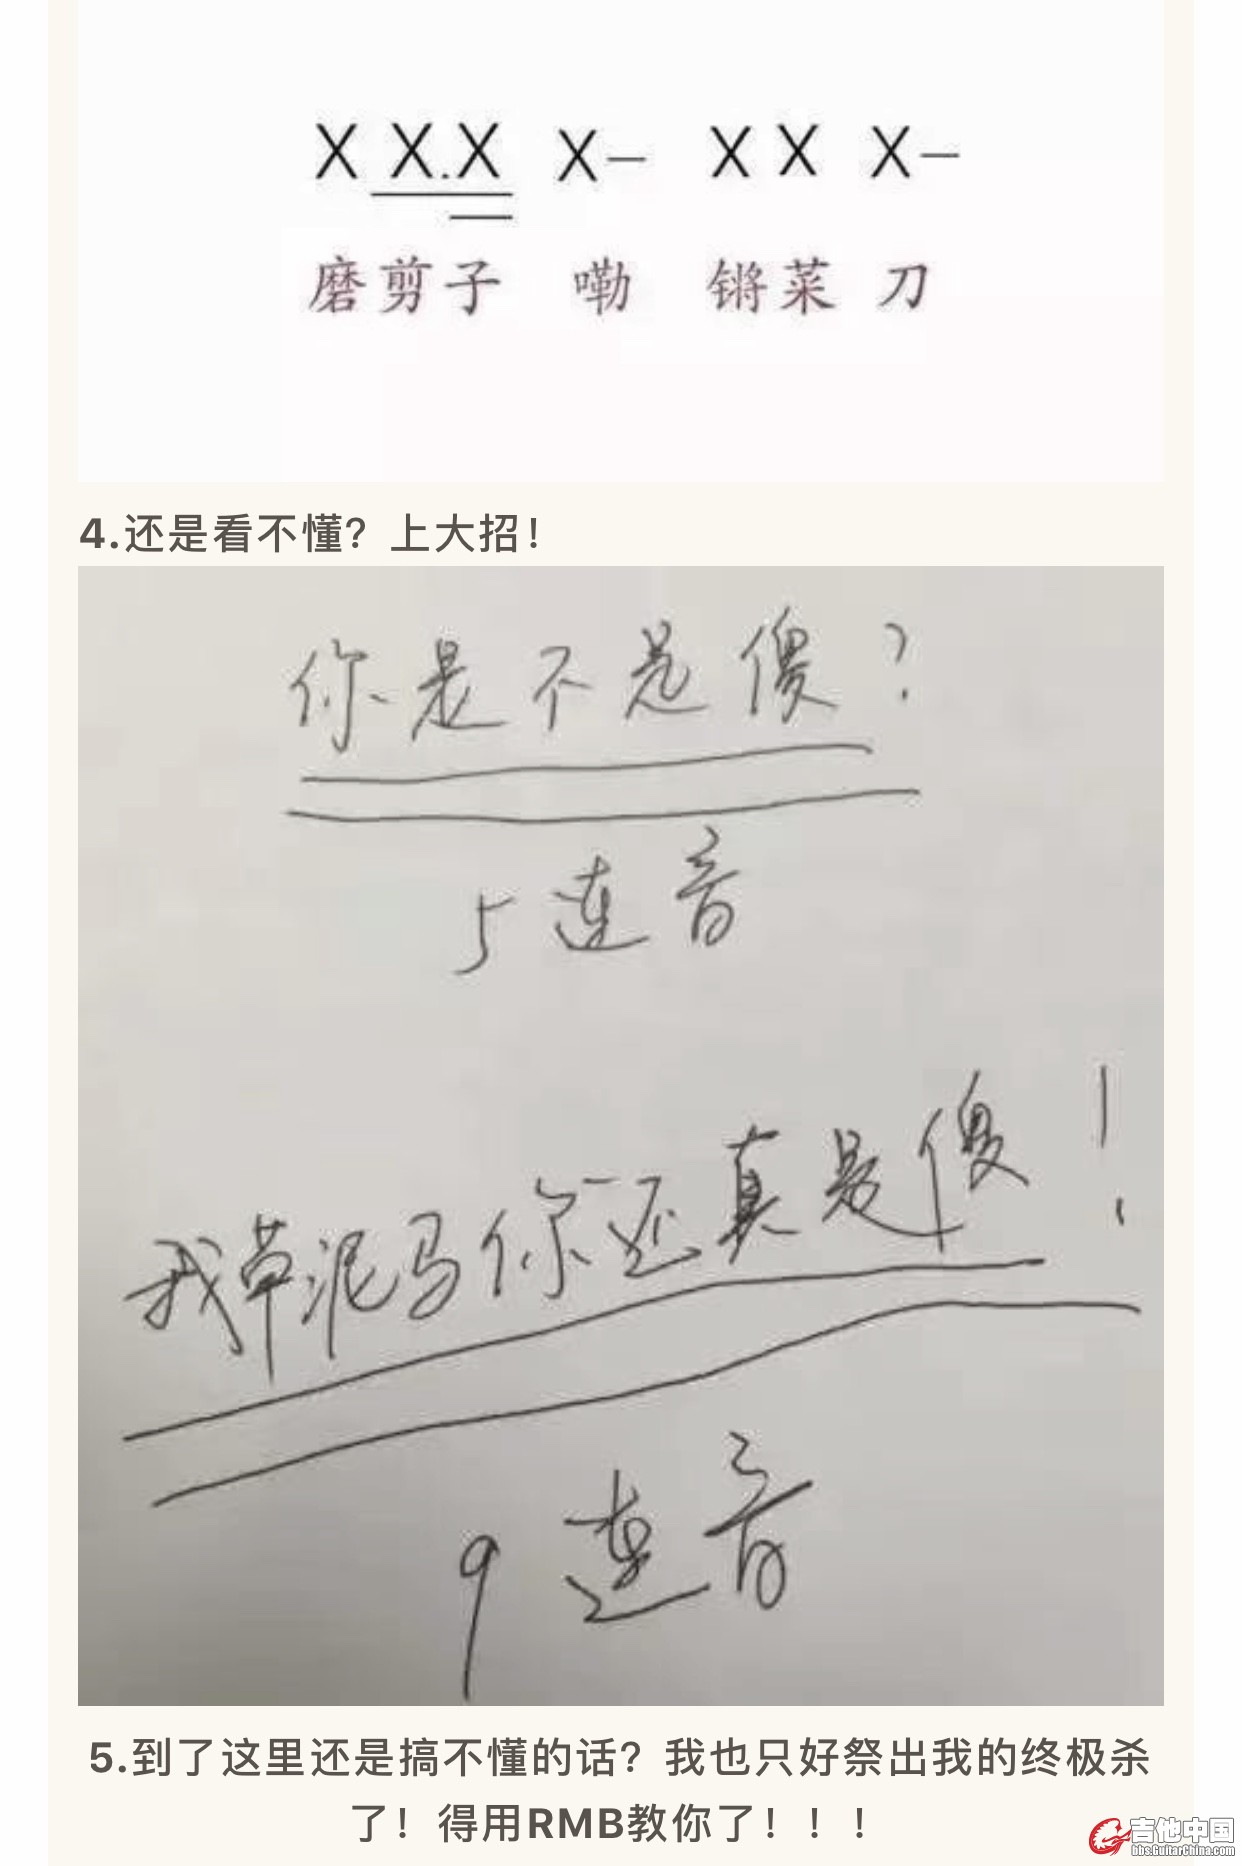 X X.X X– X X X–
磨剪子 嘞 锵菜 刀
4.还是看不懂？上大招！
你是不是傻？
5连音
我草泥马你还真是傻！
9连音
5.到了这里还是搞不懂的话？我也只好祭出我的终极杀
了！得用RMB教你了！！！
吉他中国
bbs.GuitarChina.com